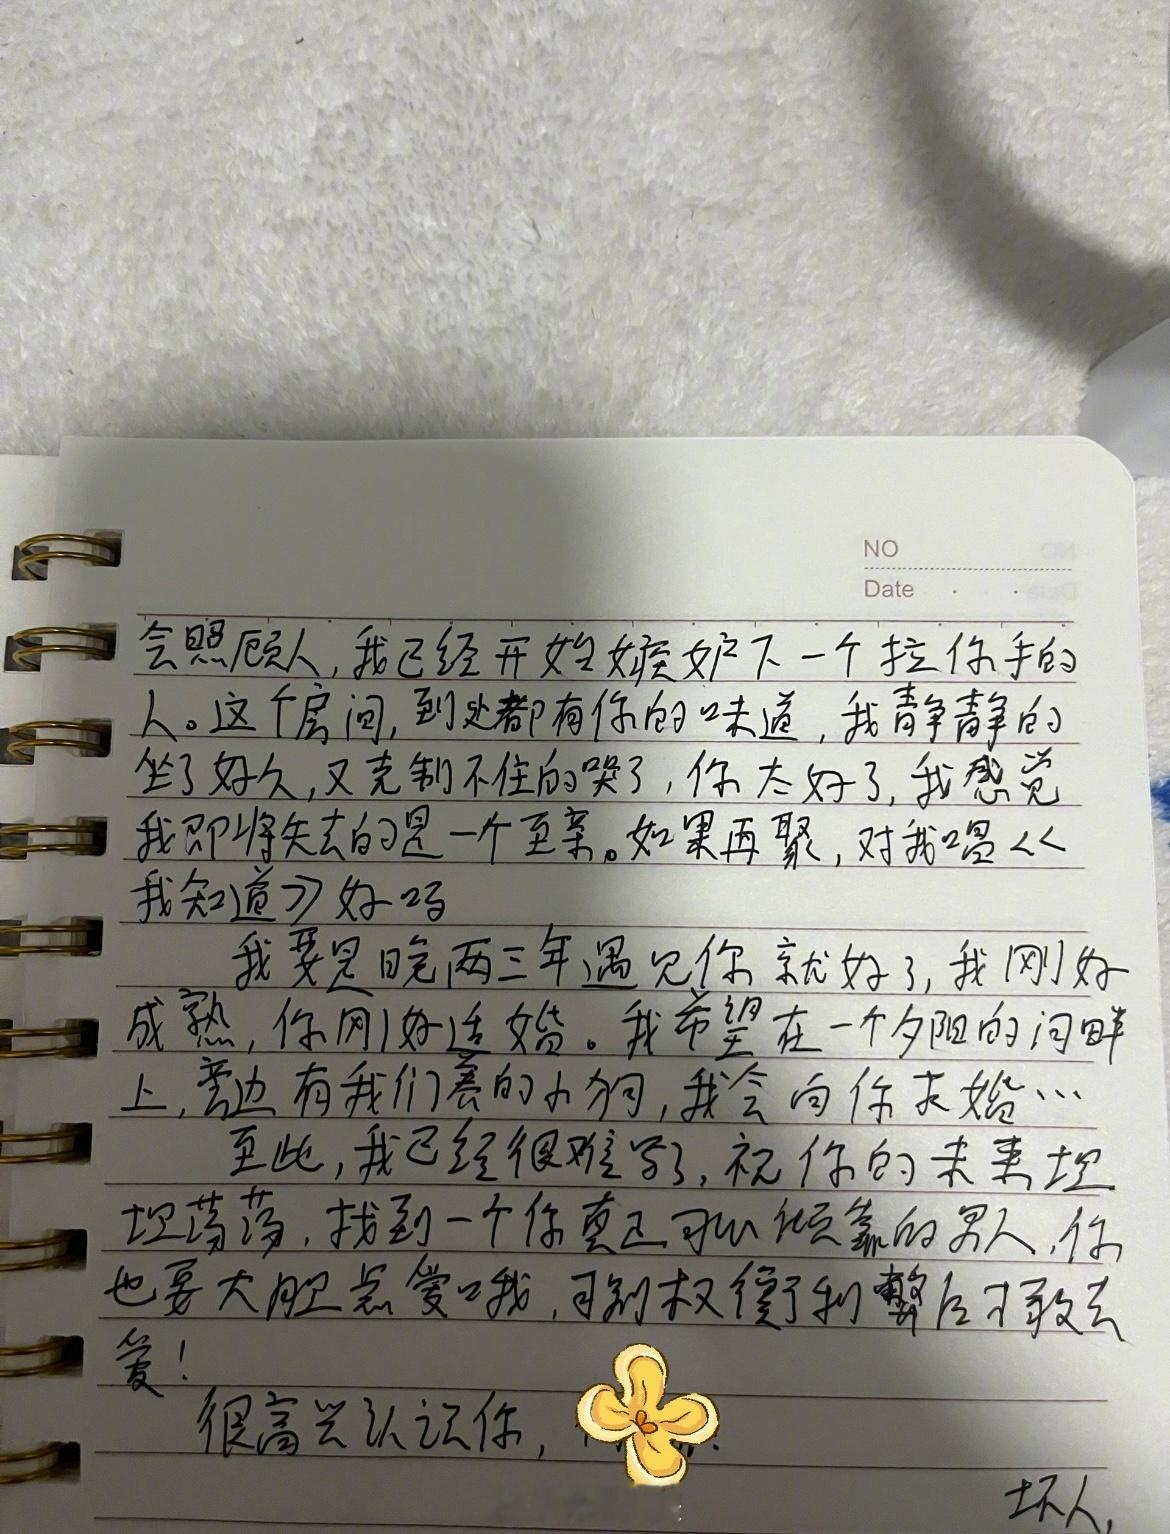 NO
Date
会照顾人,我已经开始嫉妒下一个拉你手的
人。这个房间,到处都有你的味道,我静静的
坐了好久,又克制不住的哭了,你太好了,我感觉
我即将失去的是一个至亲。如果再聚,对我唱《
我知道》好吗
我要是晚两三年遇见你就好了,我刚好
成熟,你刚好适婚。我希望在一个夕阳的河畔
上,旁边有我们养的小狗,我会向你求婚…
至此,我已经很难写了,祝你的未来坦
坦荡荡,找到一个你真正可以倾靠的男人,你
也要大胆点爱哦,可别权衡利弊后才敢去
爱!
很高兴认识你,
坏人,